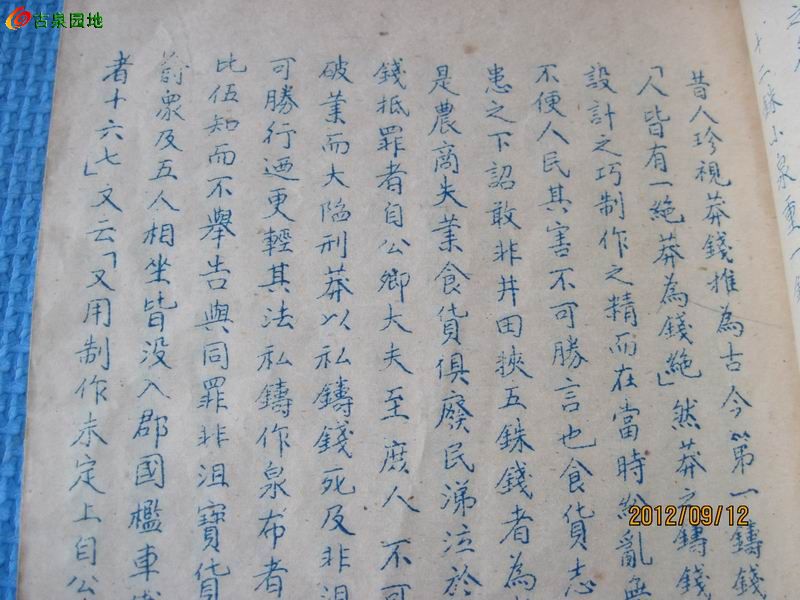 古泉园地
十二銖小泉重一
昔人珍視莽錢推為古今第一鑄錢
「人皆有一絶莽為錢絶」然莽之鑄錢
設計之巧制作之精而在當時紛亂無
不便人民其害不可勝言也食貨志
患之下詔敢非井田挾五銖錢者為
是農商失業食貨俱廢民涕泣於
錢抵罪者自公卿大夫至庶人不可
破業而大陷刑莽以私鑄錢死及非沮
可勝行迺更輕其法私鑄作泉布者
比伍知而不舉告與同罪非沮寶貨
罰衆及五人相坐皆没入郡國檻車
者十六七」又云「又用制作未定上自公
2012/09/12